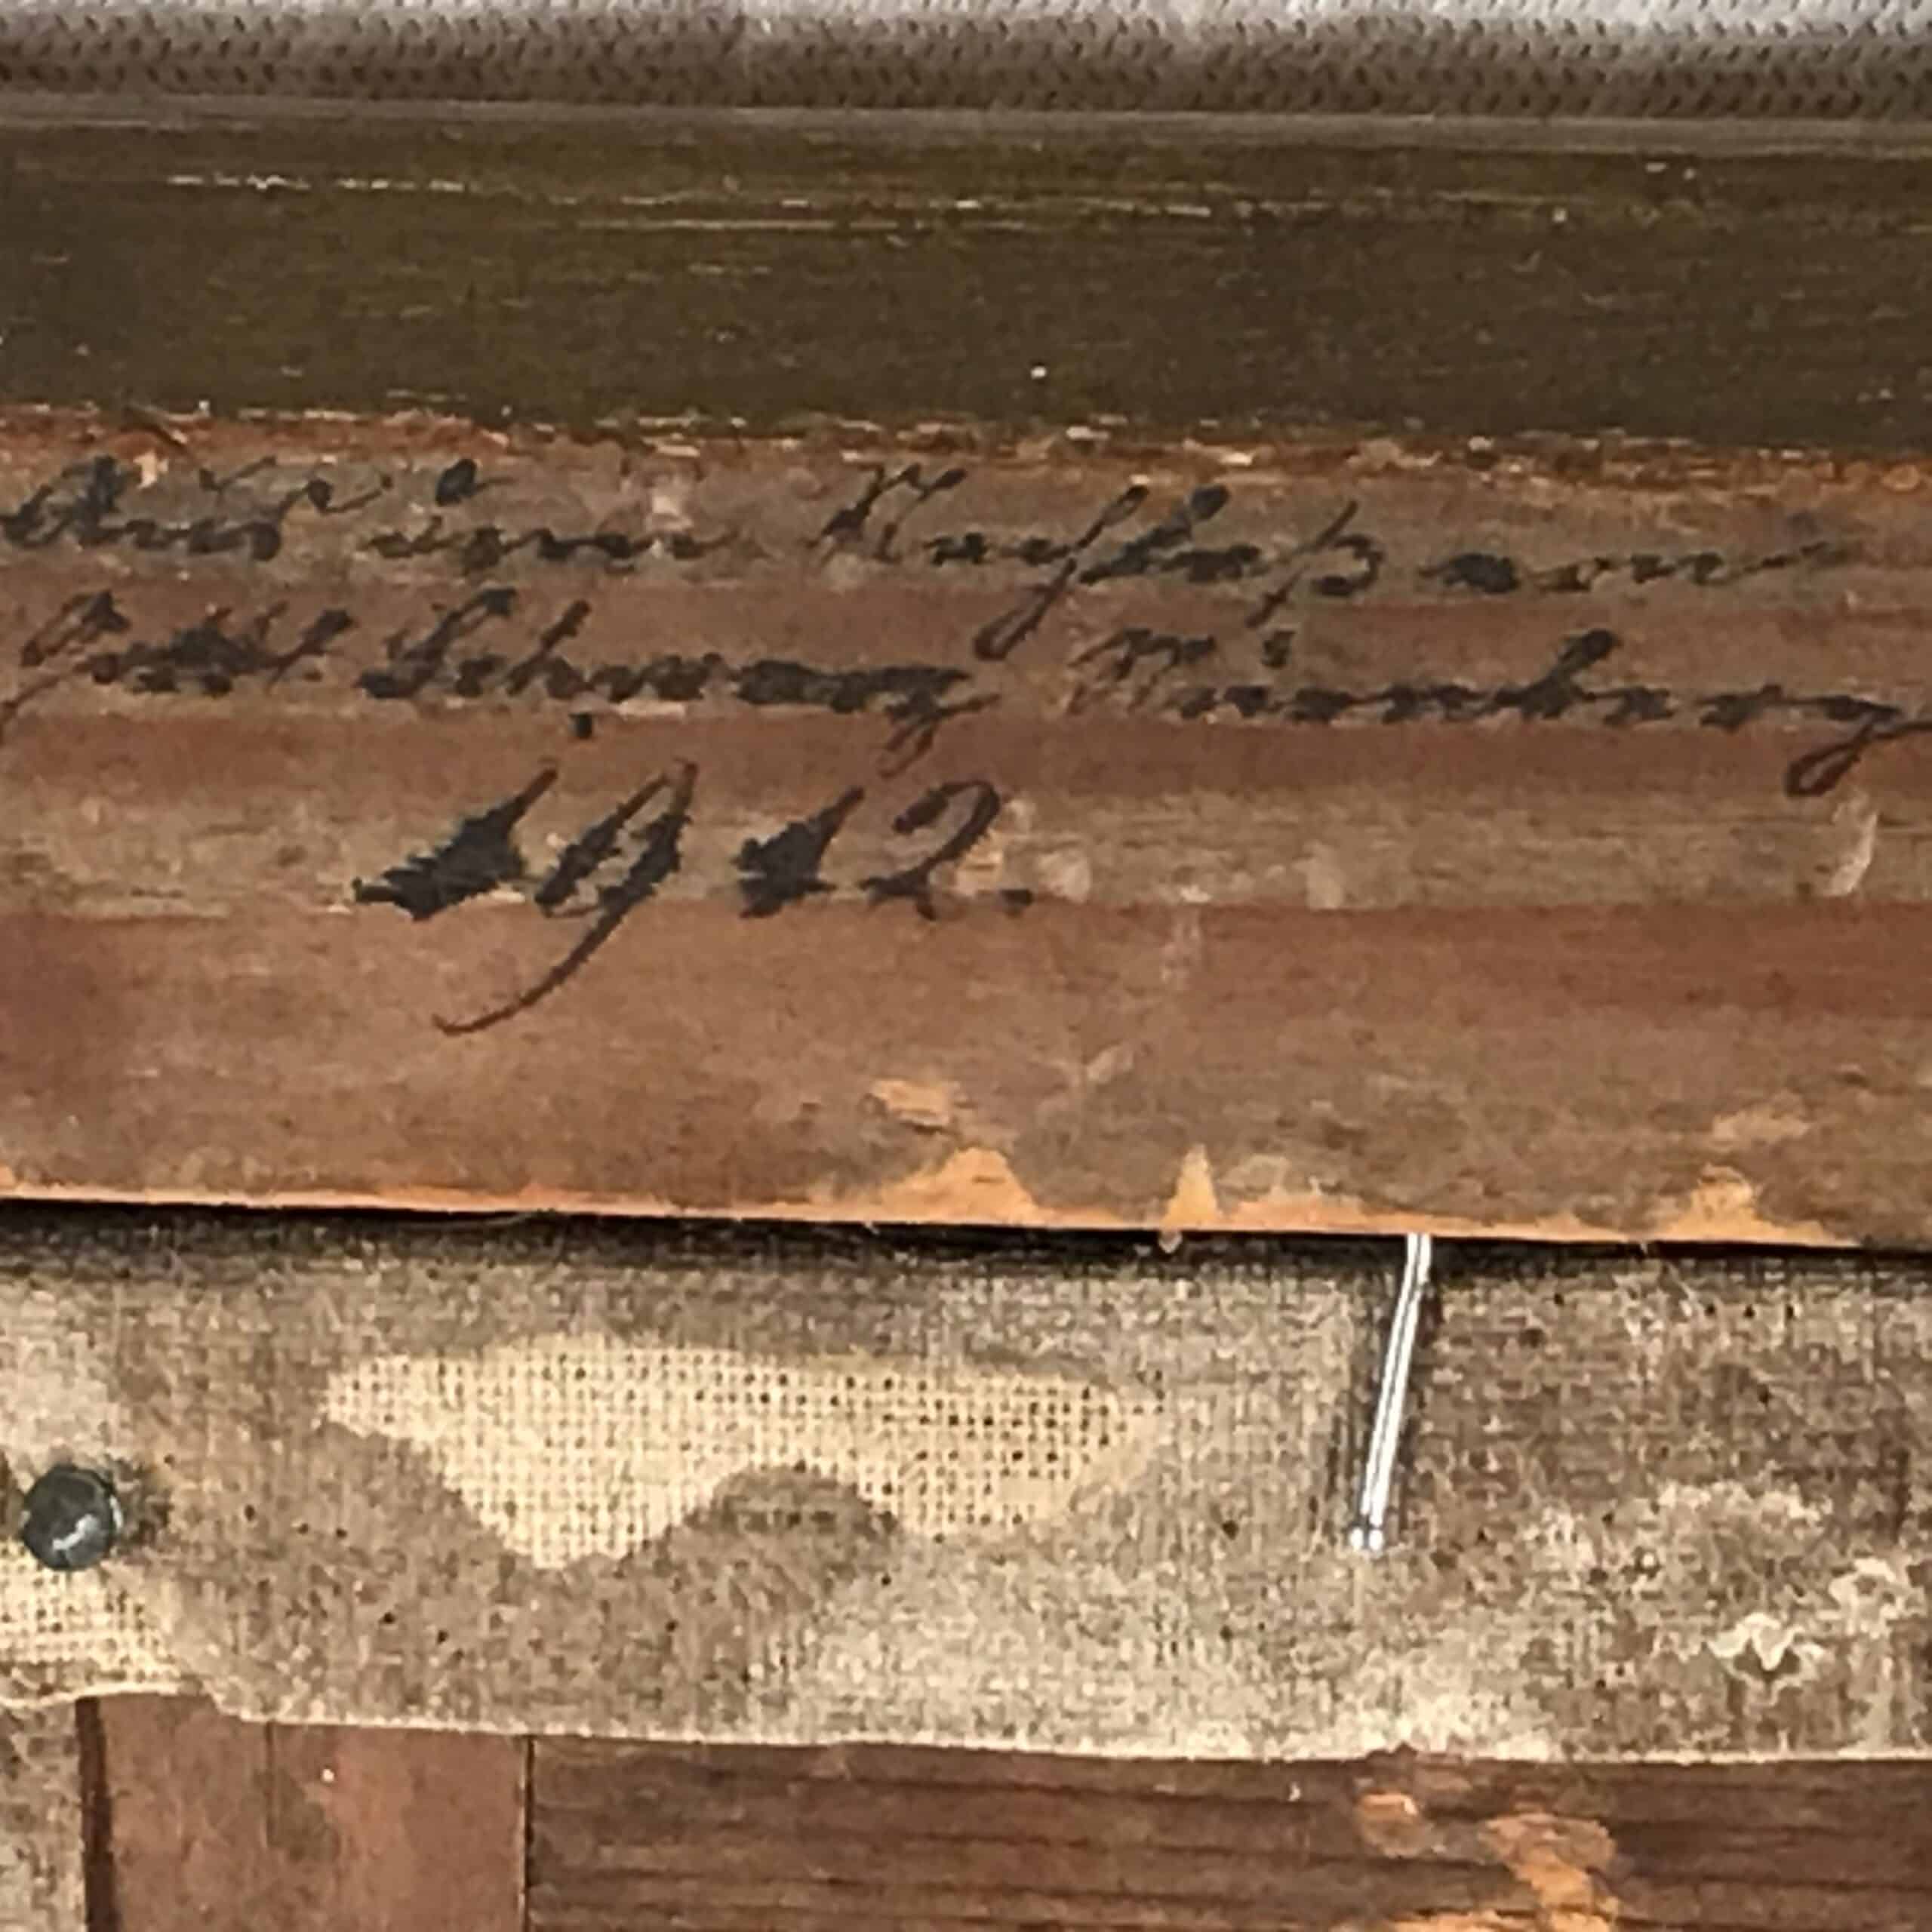 Aus dem Nachlaß von
Gottl. Schwarz Nürnberg
1912.